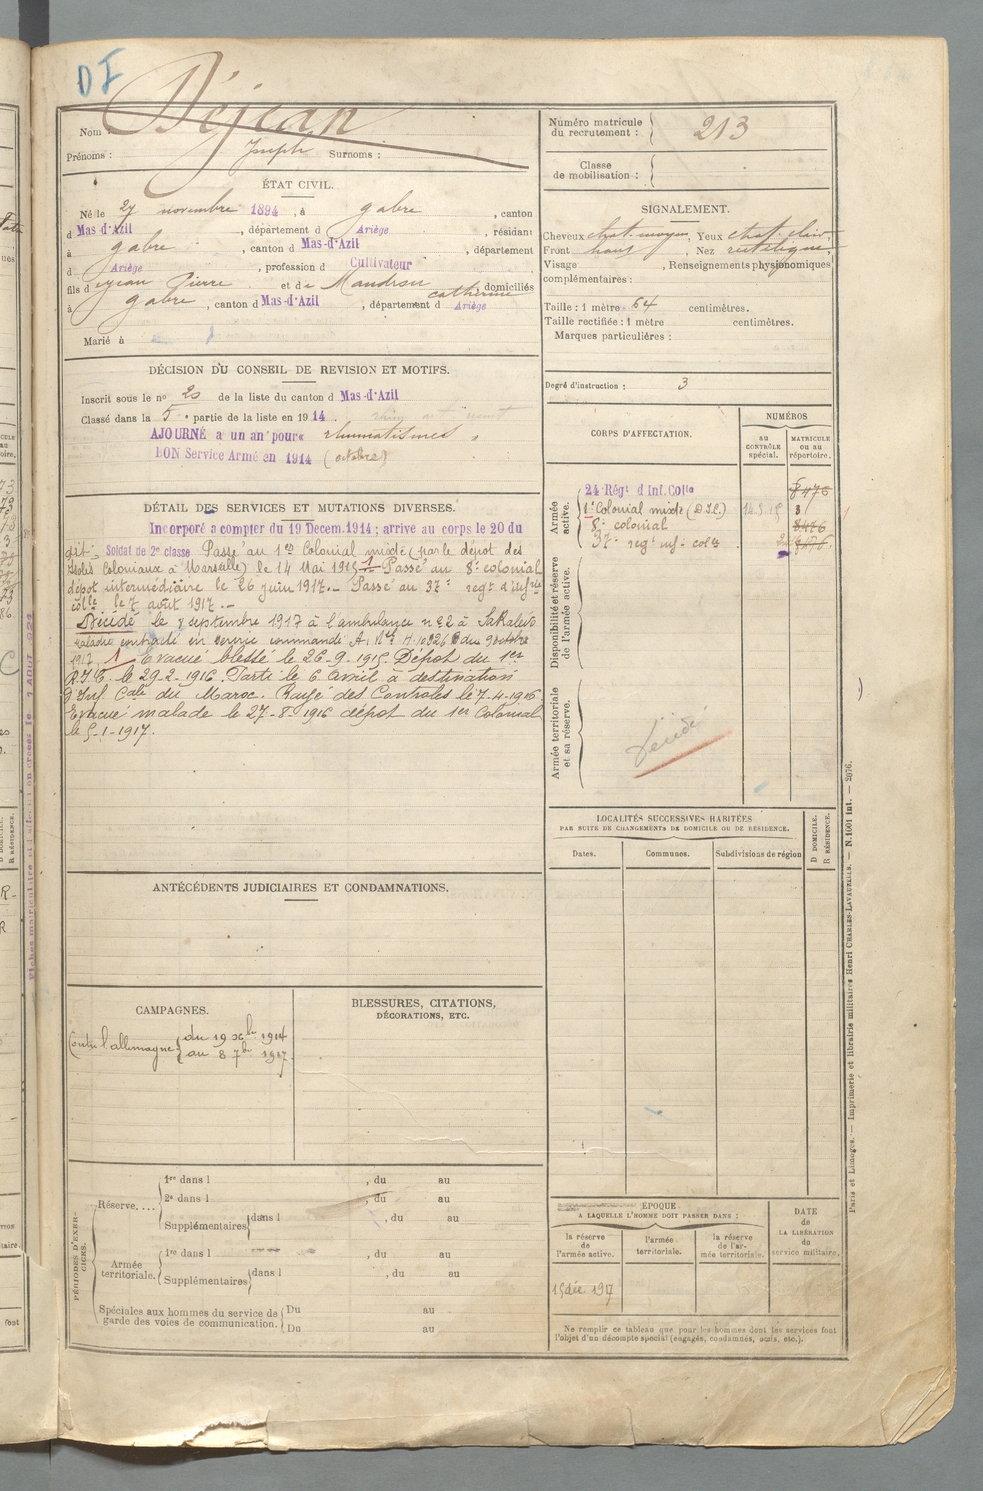 DI
Nom : Déjean
Prénoms : Joseph Surnoms :
Numéro matricule du recrutement : 213
Classe de mobilisation :
ÉTAT CIVIL.
Né le 27 novembre 1894, à gabre, canton
d Mas-d'Azil, département d Ariège, résidant
à gabre, canton d Mas-d'Azil, département
d Ariège, profession d Cultivateur
fils d ejean Pierre et de catherine domiciliés
à gabre, canton d Mas-d'Azil, département d Ariège
Marié à
SIGNALEMENT.
Cheveux chat. moyen, Yeux chat. clair,
Front haut, Nez rectiligne,
Visage , Renseignements physionomiques
complémentaires :
Taille : 1 mètre 64 centimètres.
Taille rectifiée : 1 mètre centimètres.
Marques particulières :
Degré d'instruction : 3
DÉCISION DU CONSEIL DE REVISION ET MOTIFS.
Inscrit sous le n° 20 de la liste du canton d Mas-d'Azil
Classé dans la 5e partie de la liste en 1914.
AJOURNÉ a un an pour rhumatismes.
BON Service Armé en 1914 (octobre)
DÉTAIL DES SERVICES ET MUTATIONS DIVERSES.
Incorporé a compter du 19 Decem. 1914 ; arrivé au corps le 20 du
dit. Soldat de 2e classe. Passé au 1er Colonial mixte (par le dépot des
isolés Coloniaux à Marseille) le 14 Mai 1915 1 Passé au 8e colonial
dépot intermédiaire le 26 juin 1917.- Passé au 37e regt d'infrie
colle le 7 août 1917.-
Décédé le 8 septembre 1917 à l'ambulance n° 2 à Sakulévo
maladie contracté en service commandé A. Mel H. 10926 du 9 octobre
1917. 1 Evacué blessé le 26-9-1915. Dépot du 1er
R.I.C. le 29-2-1916. Parti le 6 Avril à destination
d'Inf Cale du Maroc. Rayé des Controles le 7-4-1916
Evacué malade le 27-8-1916 dépot du 1er Colonial
le 5-1-1917.
CORPS D'AFFECTATION.
NUMÉROS
au CONTRÔLE spécial.
MATRICULE ou au répertoire.
Armée active.
24 Régt d Inf. Colle 8476
1er Colonial mixte (D.I.C.) 14.5.15
8e colonial 8476
37e regt inf. colle
Disponibilité et réserve de l'armée active.
Armée territoriale et sa réserve.
Décédé
LOCALITÉS SUCCESSIVES HABITÉES
PAR SUITE DE CHANGEMENTS DE DOMICILE OU DE RÉSIDENCE.
Dates.
Communes.
Subdivisions de région
D DOMICILE.
R RÉSIDENCE.
ANTÉCÉDENTS JUDICIAIRES ET CONDAMNATIONS.
CAMPAGNES.
Contre l'allemagne du 19 Xbre 1914
au 8 7bre 1917
BLESSURES, CITATIONS, DÉCORATIONS, ETC.
PÉRIODES D'EXERCICES.
Réserve....
1re dans l , du au
2e dans l , du au
Supplémentaires dans l , du au
Armée territoriale.
1re dans l , du au
Supplémentaires dans l , du au
Spéciales aux hommes du service de garde des voies de communication.
Du au
Du au
ÉPOQUE
A LAQUELLE L'HOMME DOIT PASSER DANS :
la réserve de l'armée active.
l'armée territoriale.
la réserve de l'armée territoriale.
DATE de LA LIBÉRATION du service militaire.
15 déc 1917
Ne remplir ce tableau que pour les hommes dont les services font
l'objet d'un décompte spécial (engagés, condamnés, omis, etc.).
Paris et Limoges. — Imprimerie et librairie militaires Henri CHARLES-LAVAUZELLE. — N. 1001 int. — 2076.